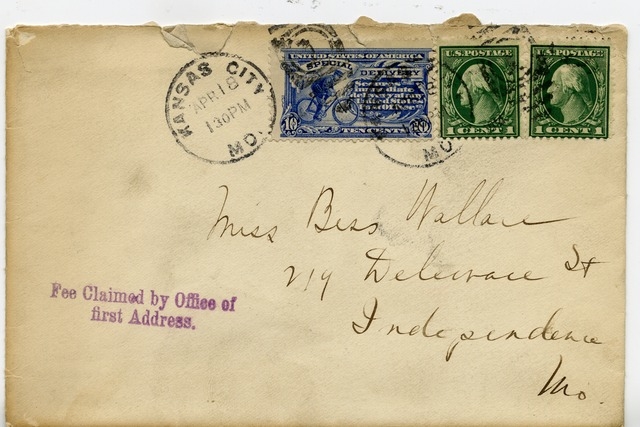 KANSAS CITY
APR 18
130PM
MO.
UNITED STATES OF AMERICA
SPECIAL
DELIVERY
Secures
immediate
delivery at any
United States
Post Office
TEN CENTS
U.S. POSTAGE
1 CENT 1
U.S. POSTAGE
1 CENT 1
MO
Miss Bess Wallace
219 Delaware St
Independence
Mo.
Fee Claimed by Office of
first Address.